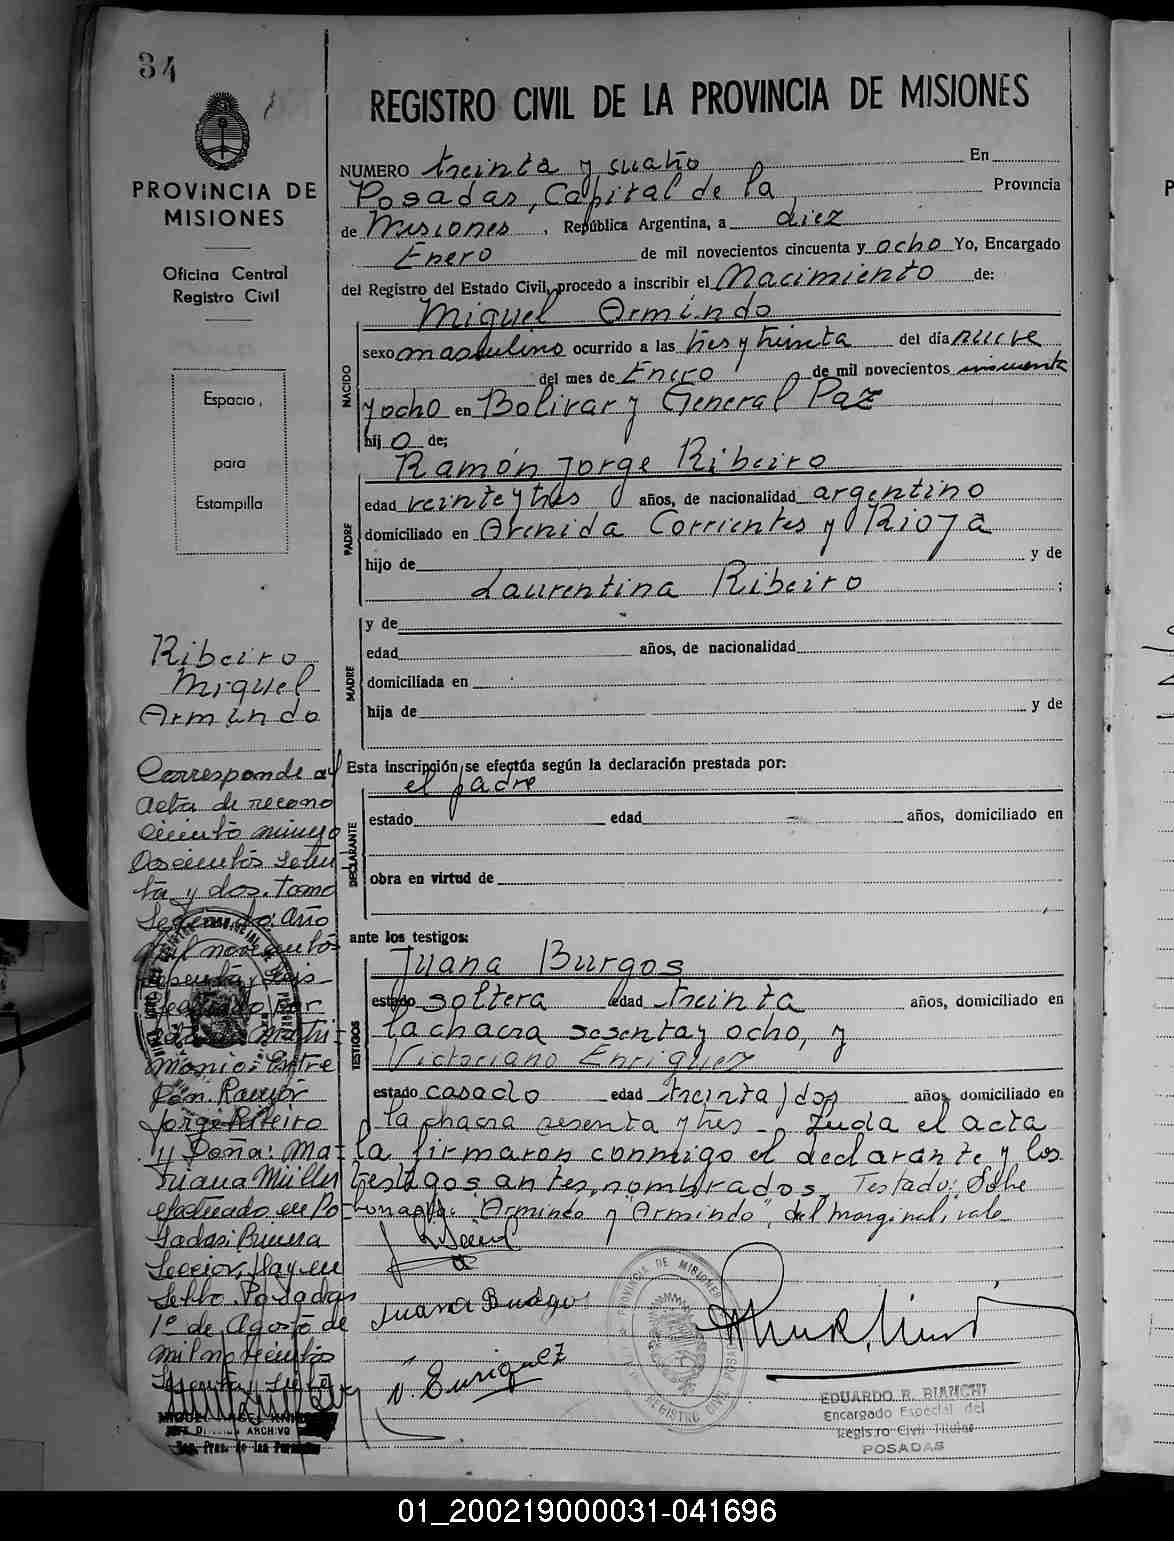 34
PROVINCIA DE
MISIONES
Oficina Central
Registro Civil
Espacio
para
Estampilla
REGISTRO CIVIL DE LA PROVINCIA DE MISIONES
NUMERO treinta y cuatro En
Posadas, Capital de la Provincia
de Misiones, República Argentina, a diez
Enero de mil novecientos cincuenta y ocho Yo, Encargado
del Registro del Estado Civil, procedo a inscribir el Nacimiento de:
Miguel Armindo
NACIDO
sexo masculino ocurrido a las tres y treinta del día nueve
del mes de Enero de mil novecientos cincuenta
y ocho en Bolivar y General Paz
hijo de;
Ramón Jorge Ribeiro
PADRE
edad veinte y tres años, de nacionalidad argentino
domiciliado en Avenida Corrientes y Rioja
hijo de y de
Laurentina Ribeiro ;
MADRE
y de
edad años, de nacionalidad
domiciliada en
hija de y de
Esta inscripción se efectúa según la declaración prestada por:
el padre
DECLARANTE
estado edad años, domiciliado en
obra en virtud de
ante los testigos:
Juana Burgos
TESTIGOS
estado soltera edad treinta años, domiciliado en
la chacra sesenta y ocho, y
Victoriano Enriquez
estado casado edad treinta y dos años, domiciliado en
la chacra sesenta y tres - Leída el acta
la firmaron conmigo el declarante y los
testigos antes nombrados. Testado:
"Armindo", del marginal, vale
Juana Burgos
V. Enriquez
PROVINCIA DE MISIONES
REGISTRO CIVIL POSADAS
EDUARDO R. BIANCHI
Encargado Especial del
Registro Civil Titular
POSADAS
Ribeiro
Miguel
Armindo
Corresponde al
acta de recono
cimiento número
Doscientos seten
ta y dos. Tomo
Segundo. Año
mil novecientos
sesenta y seis
matri-
monio: Entre
Don. Ramón
Jorge Ribeiro
y Doña: Ma-
Juana Müller
efectuado en Po-
sadas: Primera
Sección. Hay un
Sello. Posadas
1º de Agosto de
mil novecientos
sesenta y
ARCHIVO
Reg. Prov. de las Personas
01_200219000031-041696